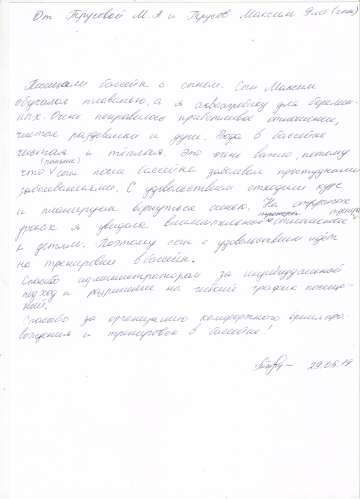 От Трусовой М.А и Трусов Максим 9 лет (сын)
Посещали бассейн с сыном. Сын Максим
обучался плаванию, а я аквааэробику для беремен-
ных. Очень понравилось приветливое отношение,
чистые раздевалки и душ. Вода в бассейне
чистая и тёплая. Это очень важно, потому
(раньше)
что сын после бассейна заболевал простудными
заболеваниями. С удовольствием отходили курс
и планируем вернуться осенью. На открытых
уроках я увидела внимательное отношение
к детям. Поэтому сын с удовольствием идёт
на тренировки в бассейн.
Спасибо администраторам за индивидуальный
подход и разрешение на гибкий график посеще-
ний.
Спасибо за организацию комфортного времяпро-
вождения и тренировок в бассейне!
29.05.19